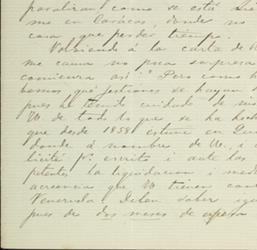 paralizar como se está
me en Carácas, donde no
cosa que perder tiempo.
Volviendo á la carta de V
me causa no poca sorpresa
comienza así: "Pero como h
bemos, qué gestiones se hayan
pues he tenido cuidado de
V. de todo lo que se ha hecho
que desde 1858 estuve en
donde á nombre de V. i
licité pr. escrito i ante las
potentes la liquidacion i
acreencia que V tienen con
Venezuela. Deben saber
pues de dos meses de espera